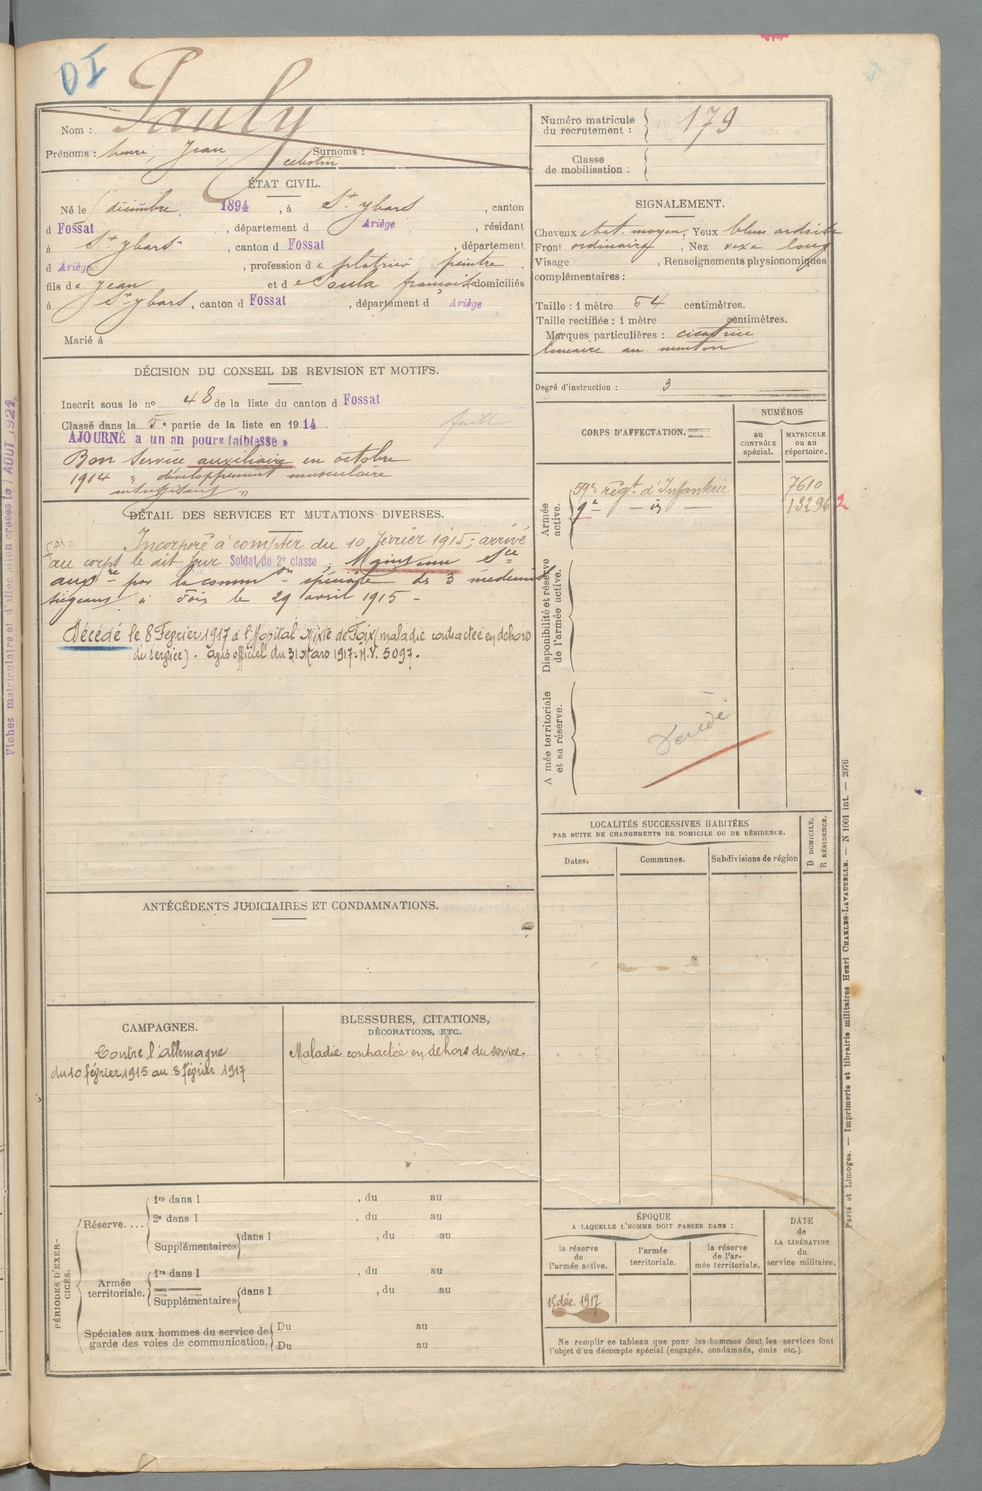 DI
Nom : Pauly
Prénoms : henri, Jean Surnoms :
Celestin
Numéro matricule
du recrutement : 179
Classe
de mobilisation :
ÉTAT CIVIL.
Né le décembre 1894, à St ybars, canton
d Fossat, département d Ariège, résidant
à St ybars, canton d Fossat, département
d Ariège, profession d e platrier peintre,
fils d e Jean et d e Soula françoise domiciliés
à St ybars, canton d Fossat, département d Ariège
Marié à
SIGNALEMENT.
Cheveux chat. moyen, Yeux bleu ardoisé
Front ordinaire, Nez vexe long
Visage , Renseignements physionomiques
complémentaires :
Taille : 1 mètre 64 centimètres.
Taille rectifiée : 1 mètre centimètres.
Marques particulières : cicatrice
lineaire au menton
Degré d'instruction : 3
DÉCISION DU CONSEIL DE REVISION ET MOTIFS.
Inscrit sous le no 48 de la liste du canton d Fossat
Classé dans la 5e partie de la liste en 1914.
AJOURNÉ à un an pour « faiblesse »
Bon service auxiliaire en octobre
1914 " développement musculaire
insuffisant "
DÉTAIL DES SERVICES ET MUTATIONS DIVERSES.
Incorporé à compter du 10 février 1915; arrivé
au corps le dit jour Soldat de 2e classe, Maintenu Sce
auxre par la common spéciale de 3 medecins
siégeant à Foix le 29 avril 1915 -
Décédé le 8 Fevrier 1917 à l'Hopital Mixte de Foix (maladie contractée en dehors
du service). avis officiel du 31 Mars 1917. N.V. 5097.
CORPS D'AFFECTATION.
NUMÉROS
au
CONTRÔLE
spécial.
MATRICULE
ou au
répertoire.
Armée
active.
59e régt d'Infanterie 7610
9e — do — 13296 2
Disponibilité et réserve
de l'armée active.
A mée territoriale
et sa réserve.
Décédé
LOCALITÉS SUCCESSIVES HABITÉES
PAR SUITE DE CHANGEMENTS DE DOMICILE OU DE RÉSIDENCE.
Dates. Communes. Subdivisions de région
D DOMICILE.
R RÉSIDENCE.
ANTÉCÉDENTS JUDICIAIRES ET CONDAMNATIONS.
CAMPAGNES.
Contre l'allemagne
du 10 février 1915 au 8 février 1917
BLESSURES, CITATIONS,
DÉCORATIONS, ETC.
Maladie contractée en dehors du service.
PÉRIODES D'EXER-
CICES.
Réserve....
1re dans l , du au
2e dans l , du au
Supplémentaires dans l , du au
Armée
territoriale.
1re dans l , du au
Supplémentaires dans l , du au
Spéciales aux hommes du service de
garde des voies de communication.
Du au
Du au
ÉPOQUE
A LAQUELLE L'HOMME DOIT PASSER DANS :
la réserve
de
l'armée active.
l'armée
territoriale.
la réserve
de l'ar-
mée territoriale.
DATE
de
LA LIBÉRATION
du
service militaire.
15 déc. 1917
Ne remplir ce tableau que pour les hommes dont les services font
l'objet d'un décompte spécial (engagés, condamnés, omis etc.).
Paris et Limoges. — Imprimerie et librairie militaires Henri CHARLES-LAVAUZELLE. — N 1001 int. — 2076